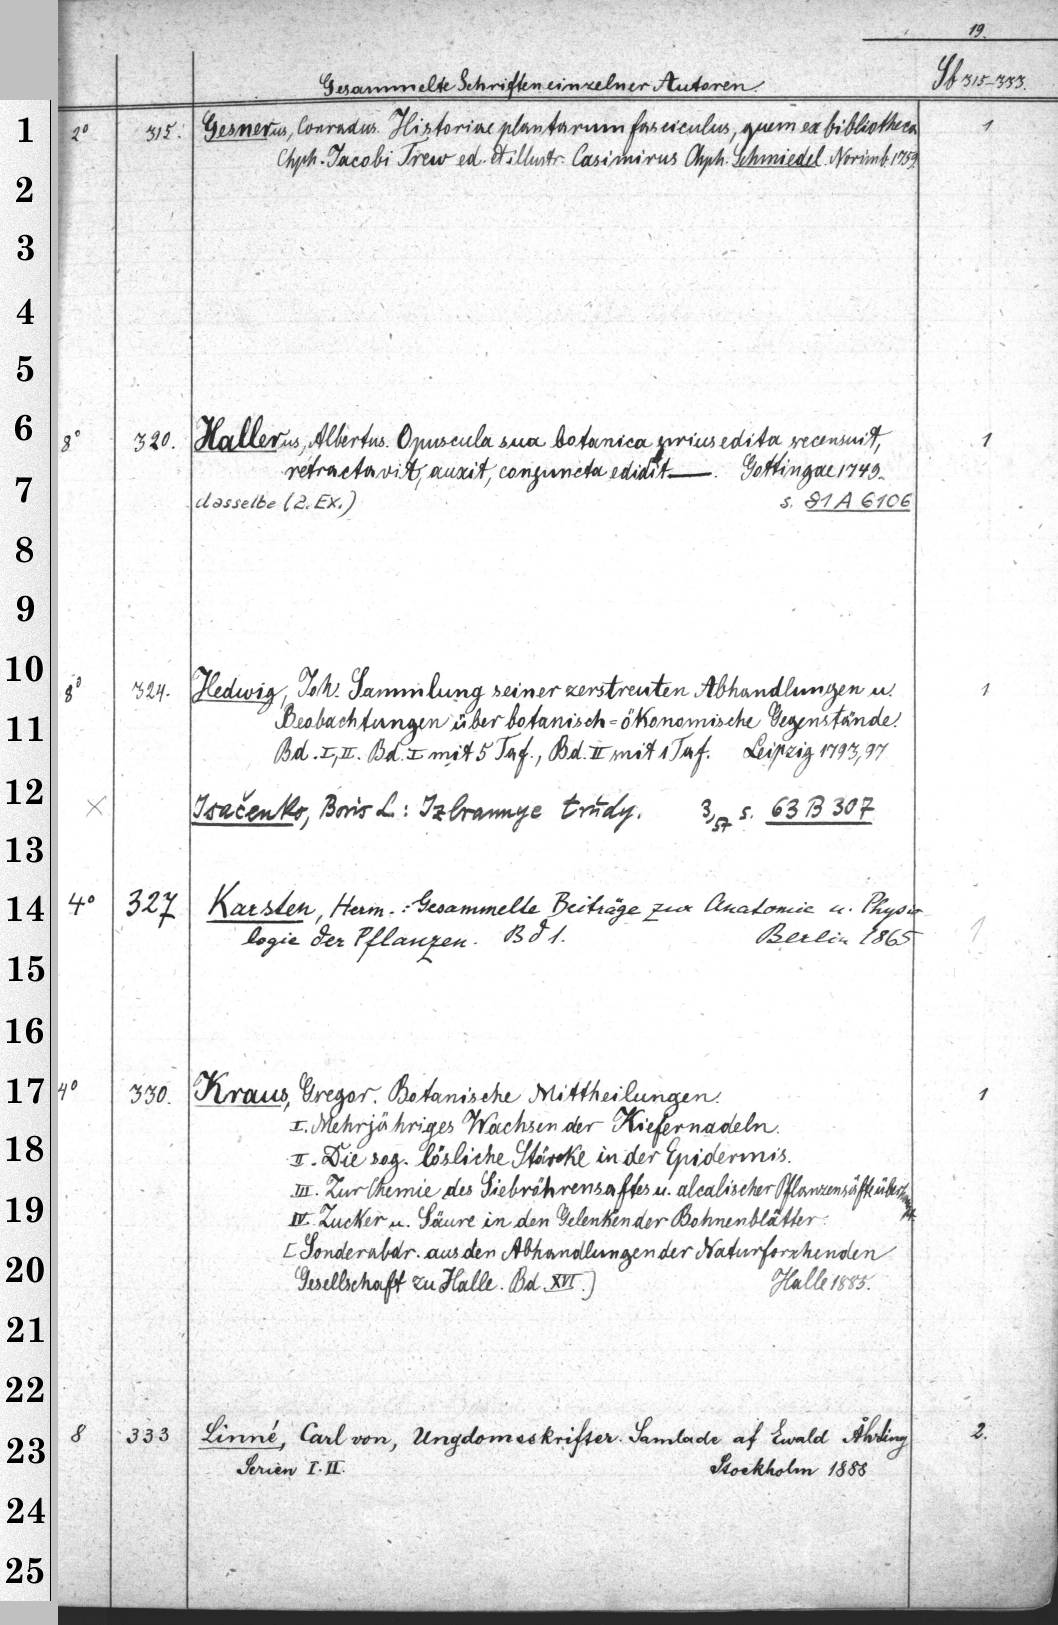 19.
Gesammelte Schriften einzelner Autoren.
Sb 315-333.
1
2° 315. Gesnerus, Conradus. Historiae plantarum fasciculus, quem ex bibliotheca 1
Chph. Jacobi Trew ed. et illustr. Casimirus Chph. Schmiedel. Norimb. 1759.
2
3
4
5
6
8° 320. Hallerus, Albertus. Opuscula sua botanica prius edita recensuit, 1
retractavit, auxit, conjuncta edidit —. Gottingae 1749.
7
dasselbe (2. Ex.) s. 81 A 6106
8
9
10
8° 324. Hedwig, Joh. Sammlung seiner zerstreuten Abhandlungen u. 1
11
Beobachtungen über botanisch=ökonomische Gegenstände.
Bd. I, II. Bd. I mit 5 Taf., Bd. II mit 1 Taf. Leipzig 1793, 97
12
× Isačenko, Boris L.: Izbrannye trudy. 3/57 s. 63 B 307
13
14
4° 327 Karsten, Herm.: Gesammelte Beiträge zur Anatomie u. Physio
logie der Pflanzen. Bd 1. Berlin 1865 1
15
16
17
4° 330. Kraus, Gregor. Botanische Mittheilungen. 1
I. Mehrjähriges Wachsen der Kiefernadeln.
18
II. Die sog. lösliche Stärke in der Epidermis.
III. Zur Chemie des Siebröhrensaftes u. alcalischer Pflanzensäfte
19
IV. Zucker u. Säure in den Gelenken der Bohnenblätter.
[Sonderabdr. aus den Abhandlungen der Naturforschenden
20
Gesellschaft zu Halle. Bd. XVI.] Halle 1885.
21
22
8 333 Linné, Carl von, Ungdomsskrifter. Samlade af Ewald Ährling 2.
23
Serien I. II. Stockholm 1888
24
25